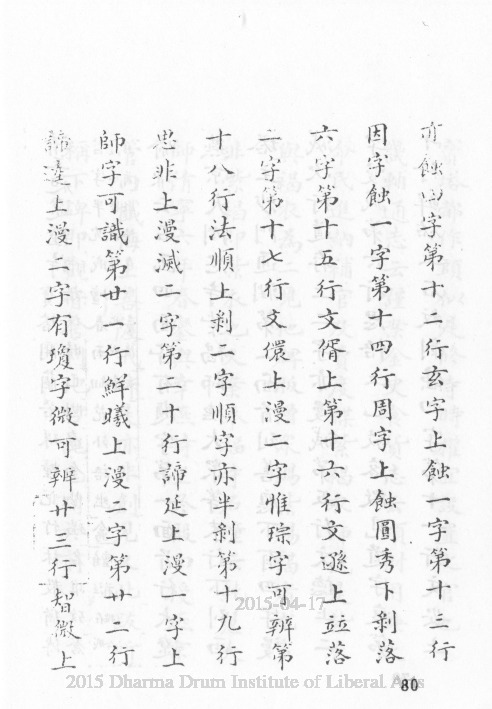 可蝕一字第十二行玄字上蝕一字第十三行
因字蝕一字第十四行周字上蝕圓秀下剝落
六字第十五行文偦上第十六行文遜上竝落
二字第十七行文儇上漫二字惟琮字可辨第
十八行法順上剝二字順字亦半剝第十九行
思非上漫滅二字第二十行諦延上漫一字上
師字可識第廿一行鮮曦上漫二字第廿二行
諦淒上漫一字有瓊字微可辨廿三行智微上
2015-04-17
2015 Dharma Drum Institute of Liberal Arts
80